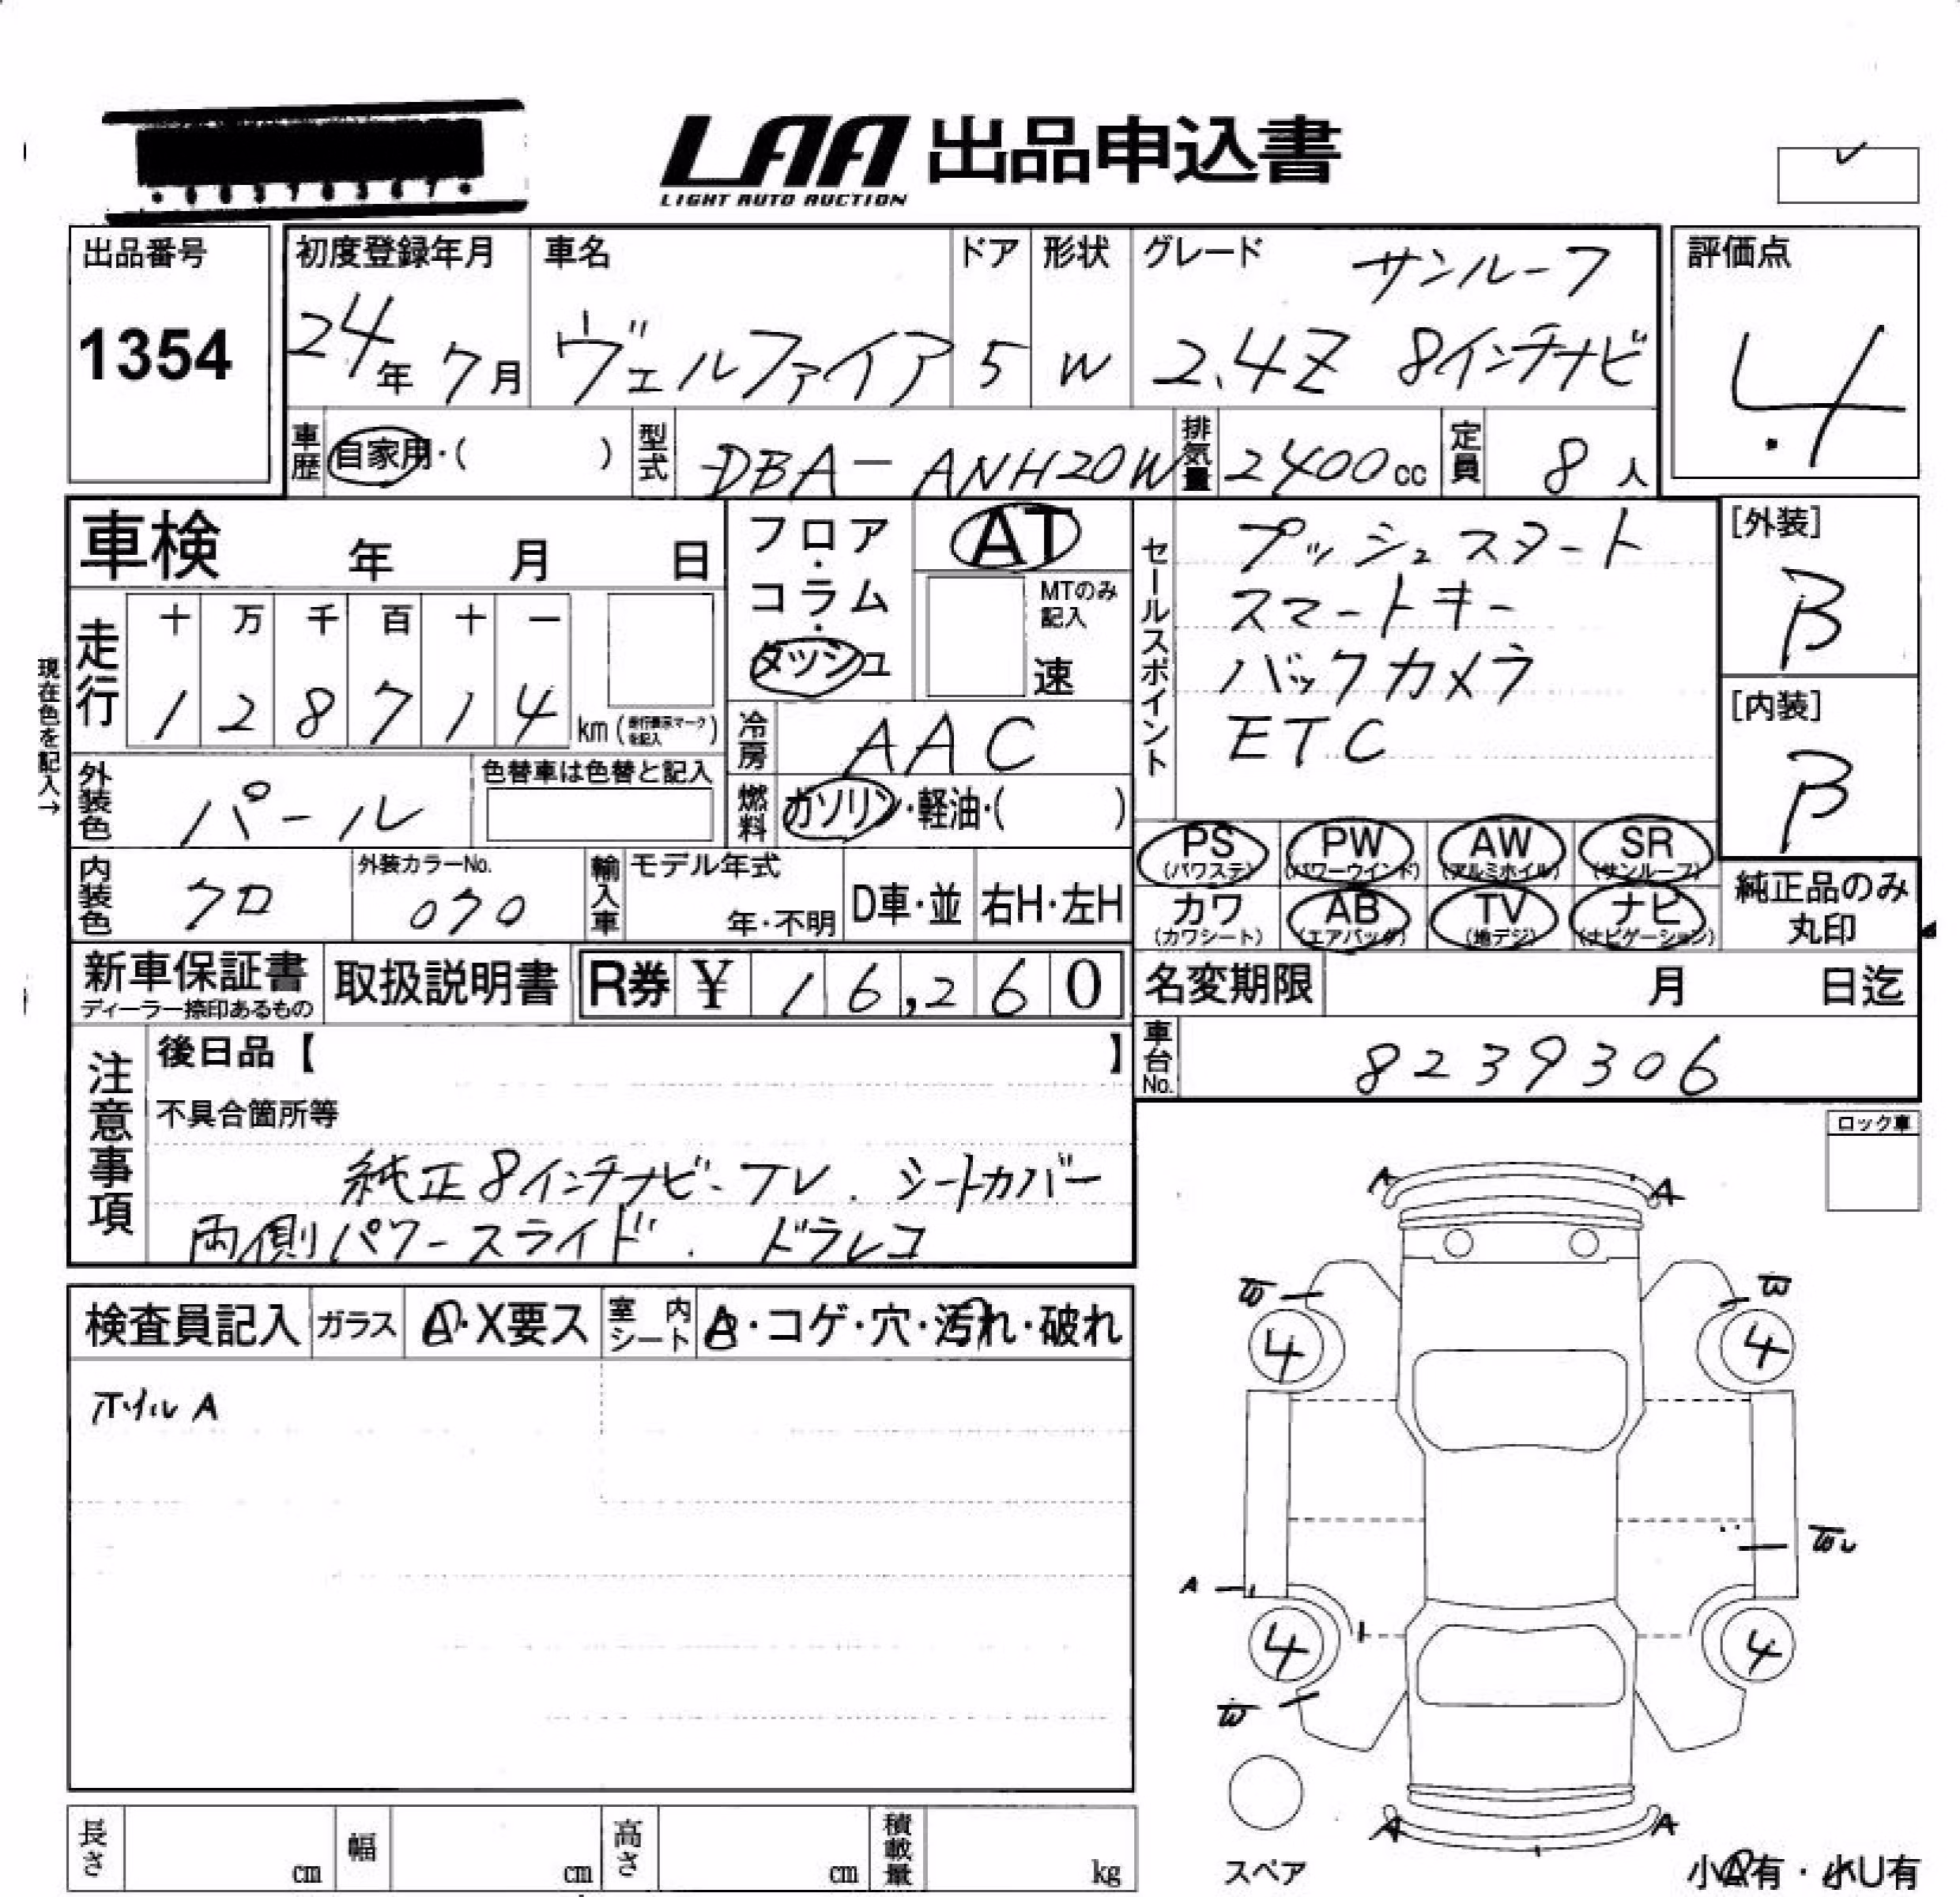 LAA 出品申込書
LIGHT AUTO AUCTION
出品番号
1354
初度登録年月
24年 7月
車名
ヴェルファイア
ドア
5
形状
W
グレード
サンルーフ
2.4Z 8インチナビ
評価点
4
車歴
自家用・( )
型式
DBA-ANH20W
排気量
2400cc
定員
8人
車検 年 月 日
フロア・コラム・ダッシュ
AT
MTのみ記入
速
セールスポイント
プッシュスタート
スマートキー
バックカメラ
ETC
[外装]
B
[内装]
B
現在色を記入→
走行
十 万 千 百 十 一
1 2 8 7 1 4 km (走行表示マークを記入)
冷房
AAC
外装色
パール
色替車は色替と記入
燃料
ガソリン・軽油・( )
PS (パワステ) PW (パワーウインド) AW (アルミホイル) SR (サンルーフ)
カワ (カワシート) AB (エアバッグ) TV (地デジ) ナビ (ナビゲーション)
純正品のみ
丸印
内装色
クロ
外装カラーNo.
070
輸入車
モデル年式
年・不明
D車・並
右H・左H
新車保証書
ディーラー捺印あるもの
取扱説明書
R券 ¥ 16,260
名変期限 月 日迄
車台No.
8239306
注意事項
後日品【 】
不具合箇所等
純正8インチナビ-TV. シートカバー
両側パワースライド. ドラレコ
ロック車
検査員記入
ガラス
A・X要ス
室内シート
A・コゲ・穴・汚れ・破れ
ホイル A
A A
W W
4 4
W
A
4 4
W
A A
スペア
長さ cm
幅 cm
高さ cm
積載量 kg
小A有・小U有